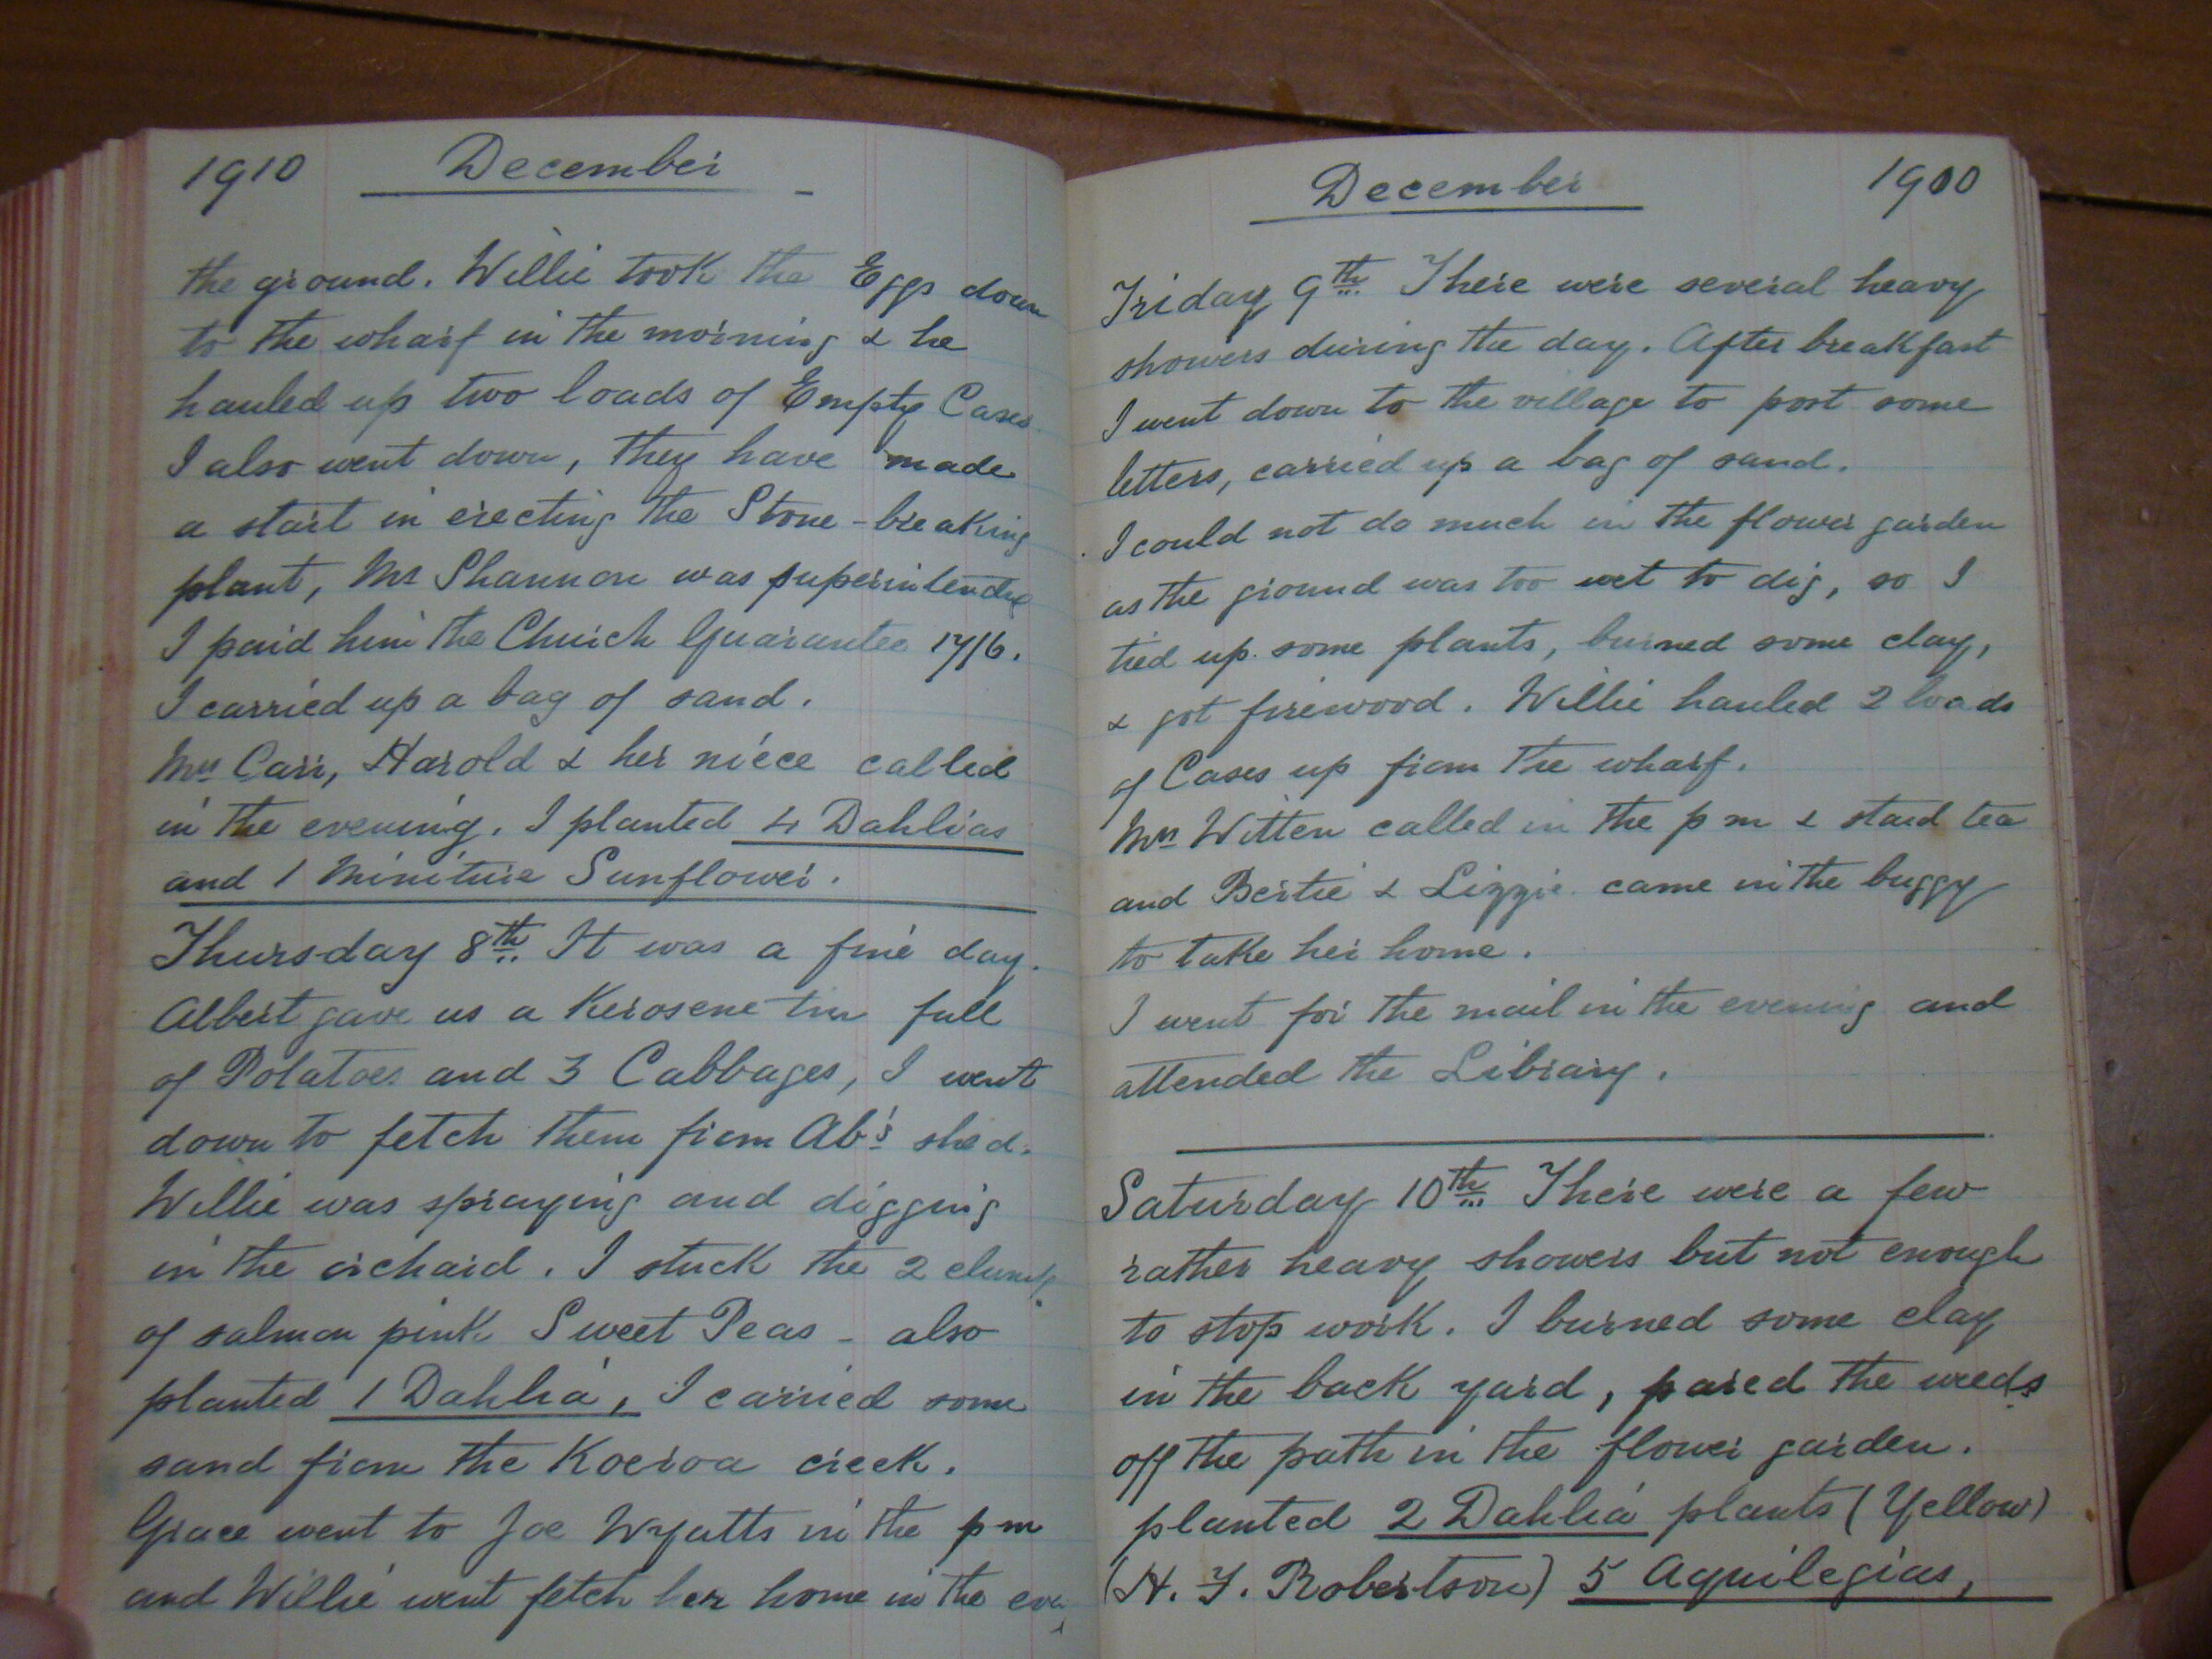 1910 December
the ground. Willie took the Eggs down
to the wharf in the morning & he
hauled up two loads of Empty Cases
I also went down, they have made
a start in erecting the Stone-breaking
plant, Mr Shannon was superintending
I paid him the Church Guarantee 17/6.
I carried up a bag of sand.
Mrs Carr, Harold & her niece called
in the evening. I planted 4 Dahlias
and 1 Miniture Sunflower.
Thursday 8th It was a fine day.
Albert gave us a Kerosene tin full
of Potatoes and 3 Cabbages, I went
down to fetch them from Ab's shed.
Willie was spraying and digging
in the orchard. I stuck the 2 clumps
of salmon pink Sweet Peas - also
planted 1 Dahlia, I carried some
sand from the Koeroa creek.
Grace went to Joe Wyatts in the pm
and Willie went fetch her home in the eve
December 1900
Friday 9th There were several heavy
showers during the day. After breakfast
I went down to the village to post some
letters, carried up a bag of sand.
I could not do much in the flower garden
as the ground was too wet to dig, so I
tied up some plants, burned some clay,
& got firewood. Willie hauled 2 loads
of Cases up from the wharf.
Mrs Witten called in the pm & staid tea
and Bertie & Lizzie came in the buggy
to take her home.
I went for the mail in the evening and
attended the Library.
Saturday 10th There were a few
rather heavy showers but not enough
to stop work. I burned some clay
in the back yard, pared the weeds
off the path in the flower garden.
planted 2 Dahlia plants (Yellow)
(H. J. Robertson) 5 Aquilegias,